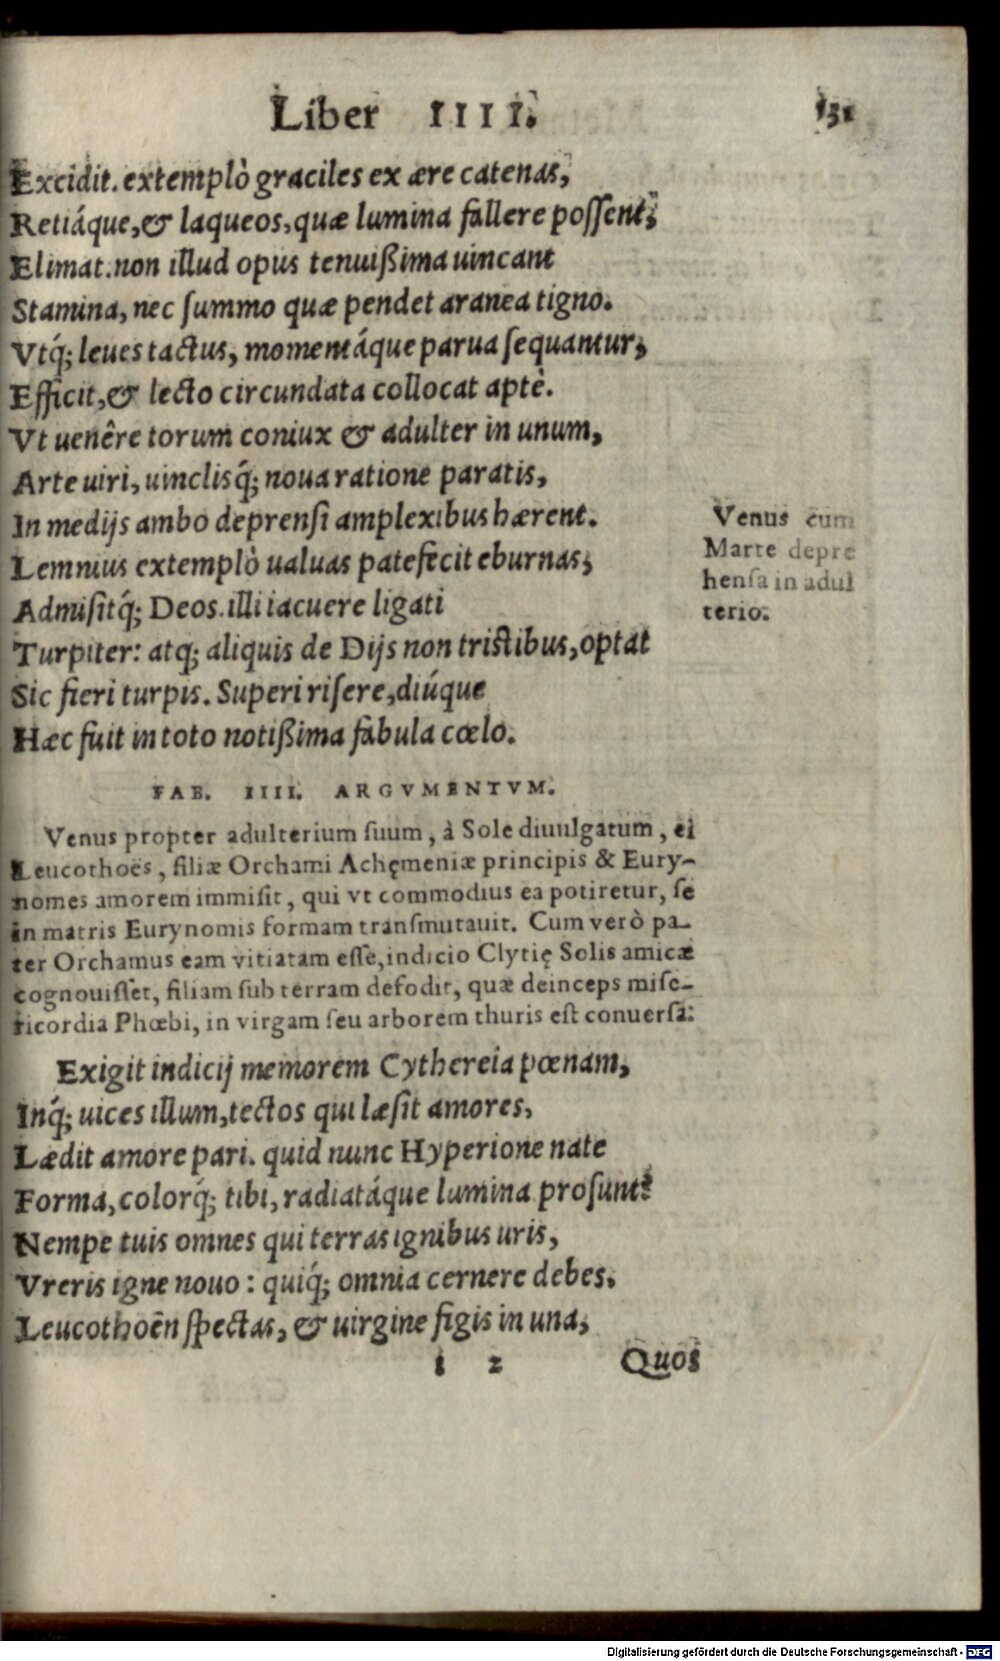 Liber IIII. 131
Excidit. extemplò graciles ex ære catenas,
Retiáque, & laqueos, quæ lumina fallere possent,
Elimat. non illud opus tenuißima uincant
Stamina, nec summo quæ pendet aranea tigno.
Vtq́; leues tactus, momentáque parua sequantur,
Efficit, & lecto circundata collocat aptè.
Vt uenêre torum coniux & adulter in unum,
Arte uiri, uinclisq́; noua ratione paratis,
In medijs ambo deprensi amplexibus hærent.
Lemnius extemplò ualuas patefecit eburnas,
Admisitq́; Deos. illi iacuere ligati
Turpiter: atq; aliquis de Dijs non tristibus, optat
Sic fieri turpis. Superi risere, diúque
Hæc fuit in toto notißima fabula cœlo.
Venus cum
Marte depre
hensa in adul
terio.
FAB. IIII. ARGVMENTVM.
Venus propter adulterium suum, à Sole diuulgatum, ei
Leucothoës, filiæ Orchami Achęmeniæ principis & Eury-
nomes amorem immisit, qui vt commodius ea potiretur, se
in matris Eurynomis formam transmutauit. Cum verò pa-
ter Orchamus eam vitiatam esse, indicio Clytię Solis amicæ
cognouisset, filiam sub terram defodit, quæ deinceps mise-
ricordia Phœbi, in virgam seu arborem thuris est conuersa.
Exigit indicij memorem Cythereia pœnam,
Inq́; uices illum, tectos qui læsit amores,
Lædit amore pari. quid nunc Hyperione nate
Forma, colorq́; tibi, radiatáque lumina prosunt?
Nempe tuis omnes qui terras ignibus uris,
Vreris igne nouo: quiq́; omnia cernere debes,
Leucothoën spectas, & uirgine figis in una,
I 2 Quos
Digitalisierung gefördert durch die Deutsche Forschungsgemeinschaft - DFG